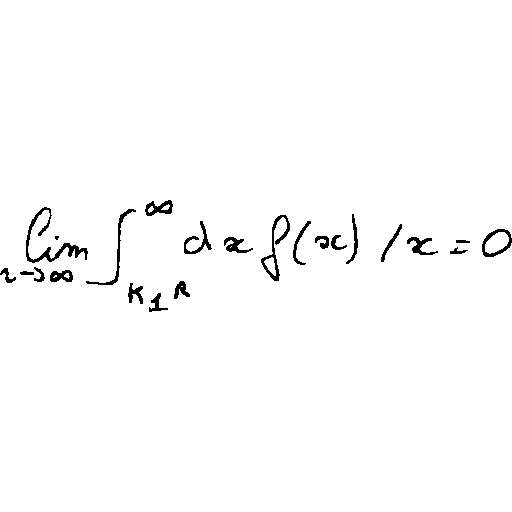 \lim_{r \to \infty} \int_{K_1 R}^{\infty} dx f(x) / x = 0